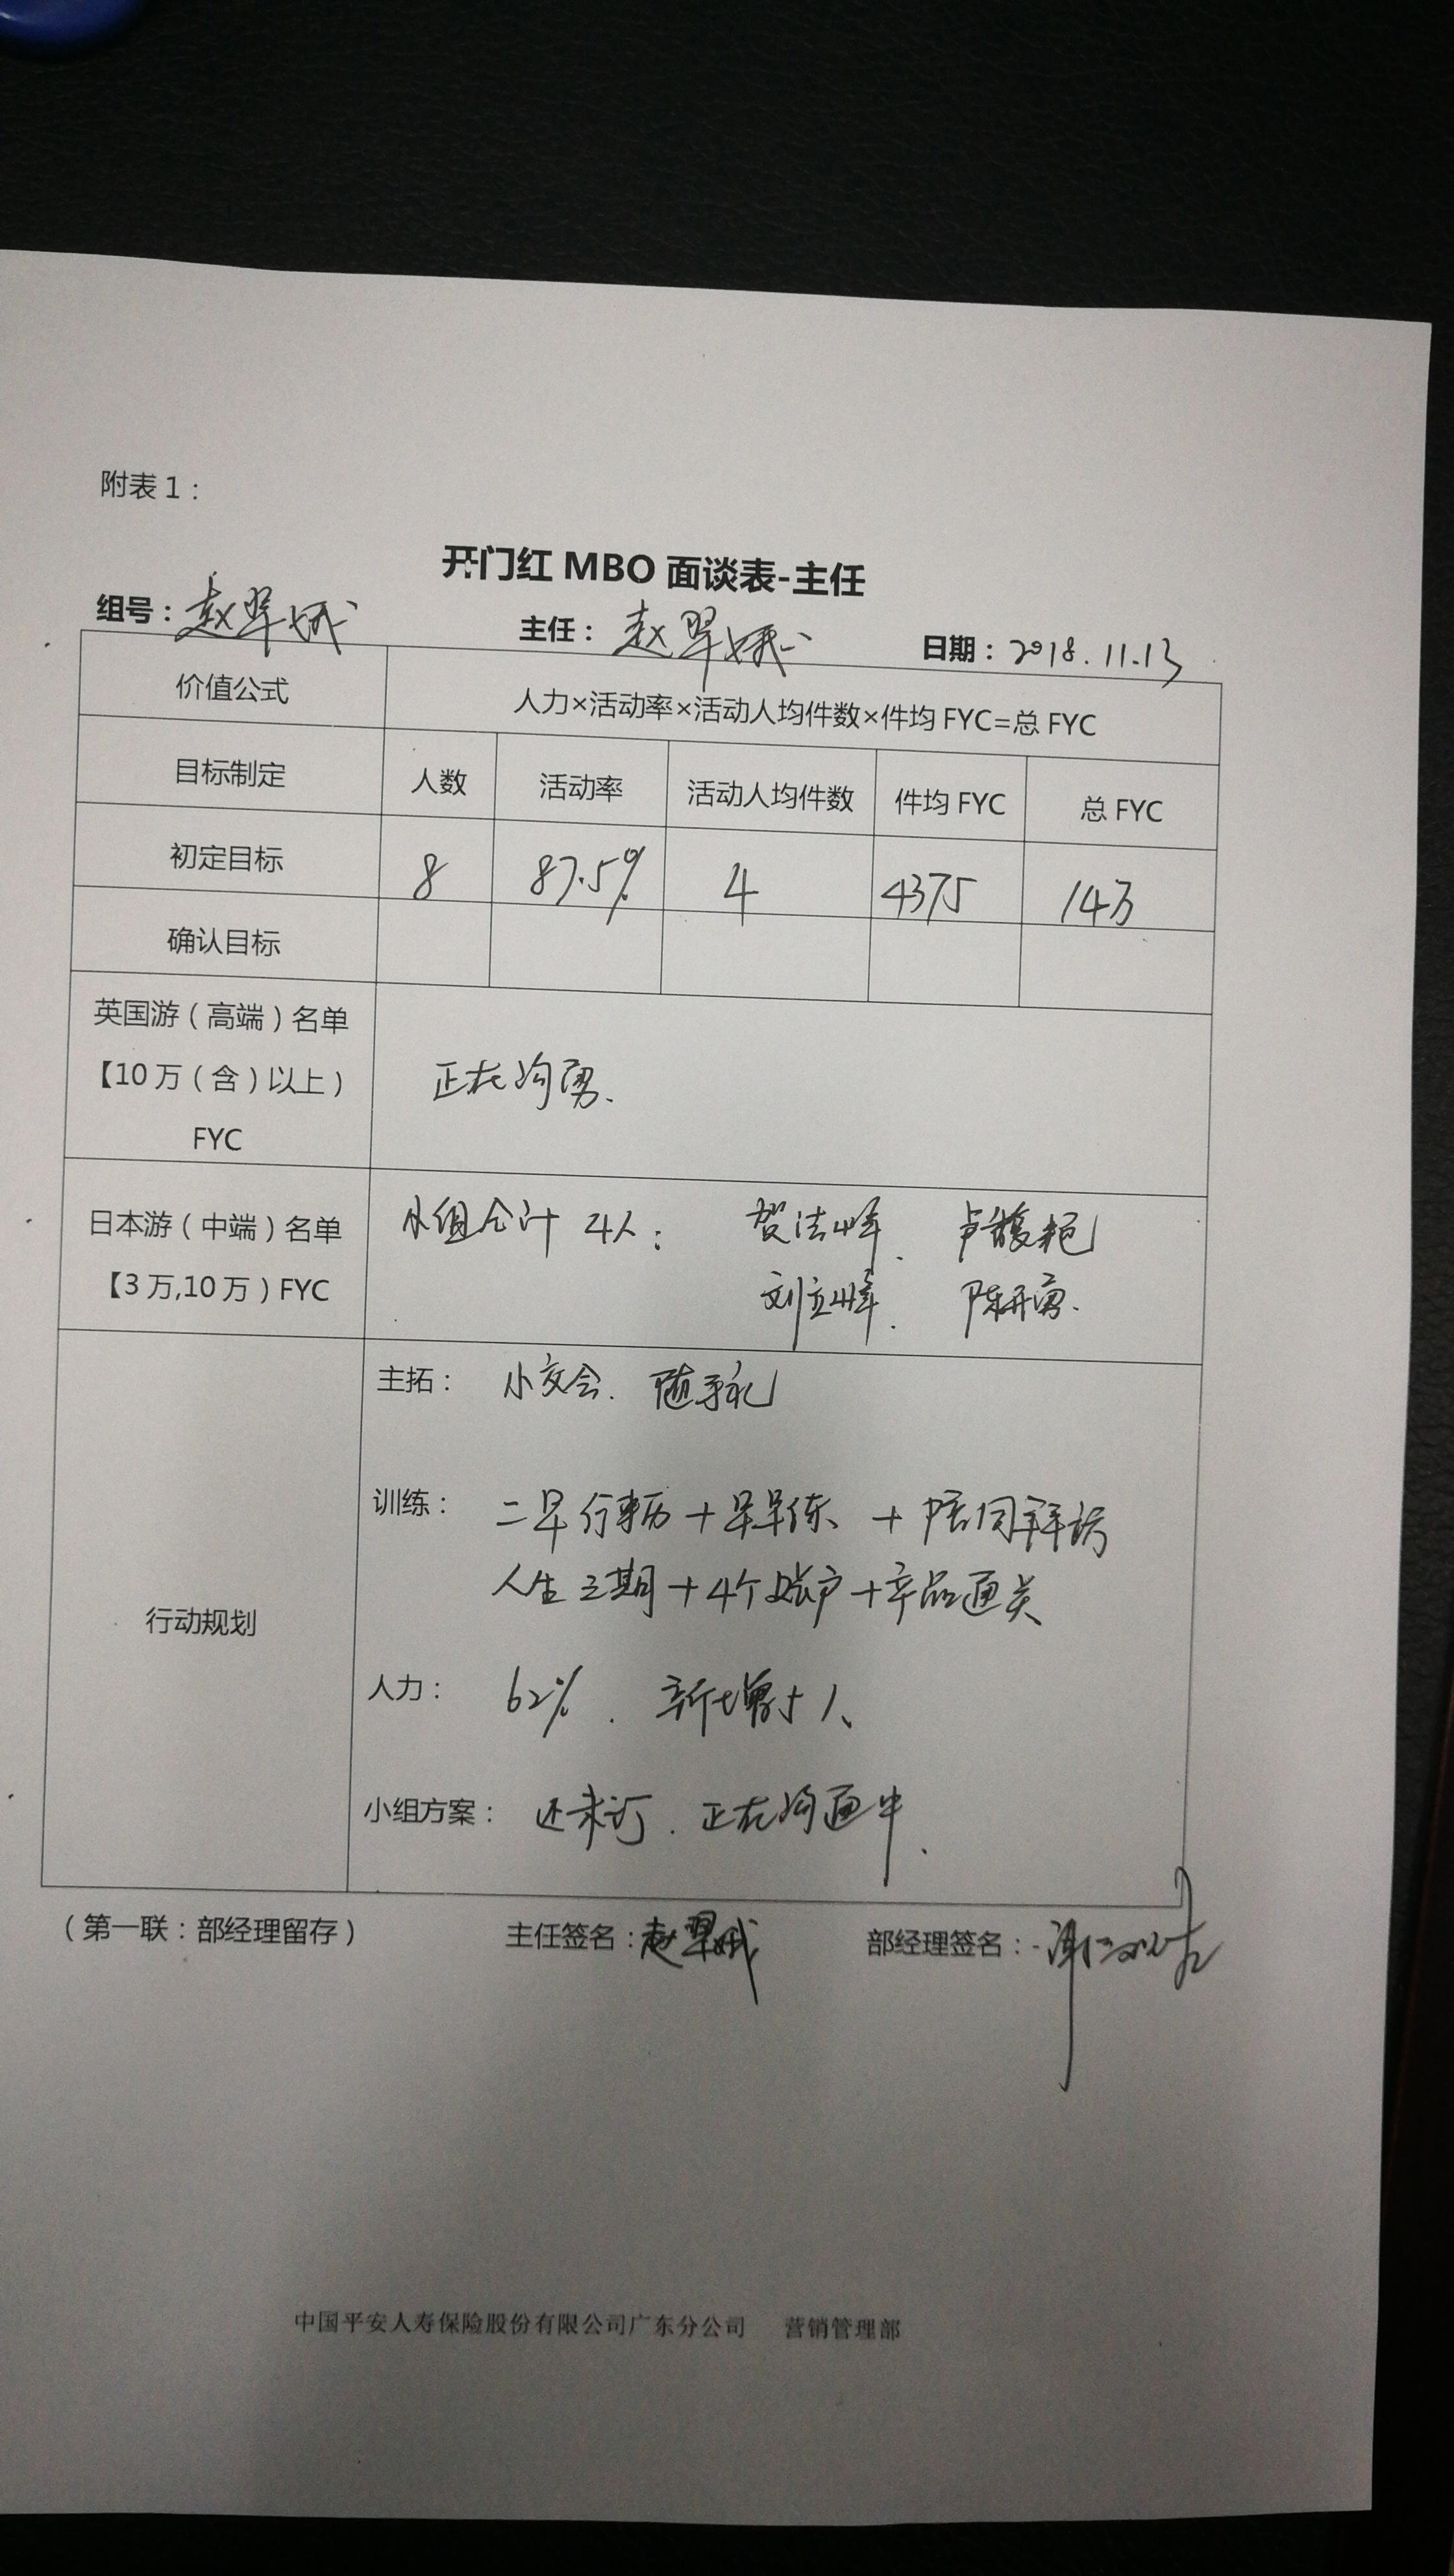 附表1：
开门红 MBO 面谈表-主任
组号：赵翠娥 主任：赵翠娥 日期：2018.11.13
价值公式 人力×活动率×活动人均件数×件均 FYC=总 FYC
目标制定 人数 活动率 活动人均件数 件均 FYC 总 FYC
初定目标 8 87.5% 4 4375 14万
确认目标
英国游（高端）名单
【10万（含）以上）
FYC
正在沟
日本游（中端）名单
【3万,10万）FYC
小组合计 4人： 贺法峰、 卢馥
刘立峰、 陈开勇.
行动规划
主拓： 小交会、随手礼
训练： 二早行事历＋早早练 ＋陪同拜访
人生三期＋4个账户＋产品通关
人力： 62%. 新增5人、
小组方案： 还未订. 正在沟通中.
（第一联：部经理留存） 主任签名：赵翠娥 部经理签名：
中国平安人寿保险股份有限公司广东分公司 营销管理部